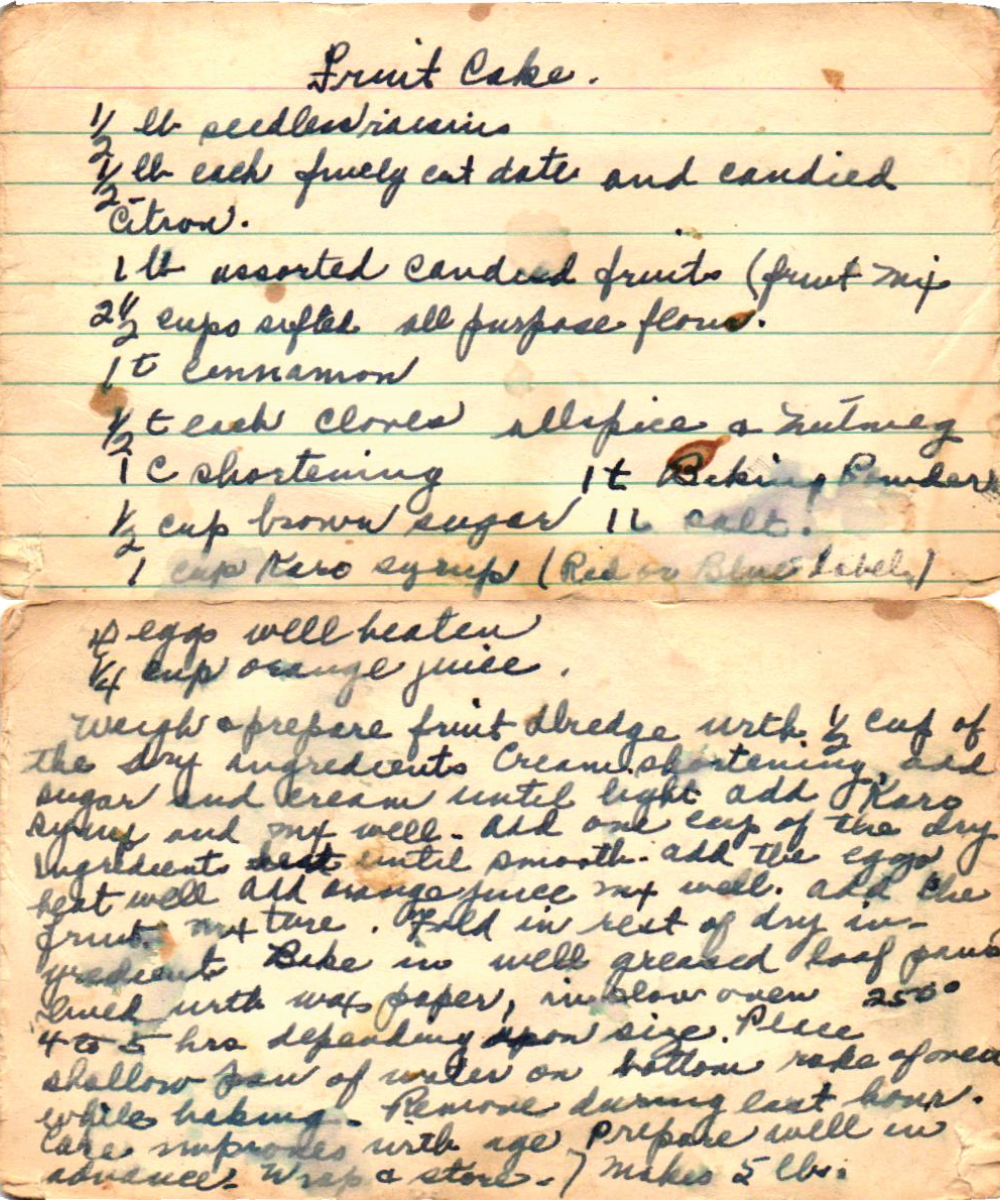 Fruit Cake.
1/2 lb seedless raisins
1/2 lb each finely cut date and candied
Citron.
1 lb assorted candied fruits (fruit mix
2 1/2 cups sifted all purpose flour.
1 t cinnamon
1/2 t each cloves allspice & nutmeg
1 C shortening 1 t Baking Powder
1/2 cup brown sugar 1 t salt.
1 cup Karo syrup (Red or Blue Label)
eggs well beaten
1/4 cup orange juice.
Weigh & prepare fruit dredge with 1/2 cup of
the dry ingredients Cream shortening, add
sugar and cream until light add Karo
syrup and mix well - add one cup of the dry
ingredients beat until smooth. add the eggs
beat well add orange juice mix well. add the
fruit mixture. Fold in rest of dry in-
gredients Bake in well greased loaf pans
lined with wax paper, in slow oven 250°
4 to 5 hrs depending upon size. Place
shallow pan of water on bottom rake of oven
while baking. Remove during last hour.
Cake improves with age Prepare well in
advance. Wrap & store.) Makes 5 lbs.